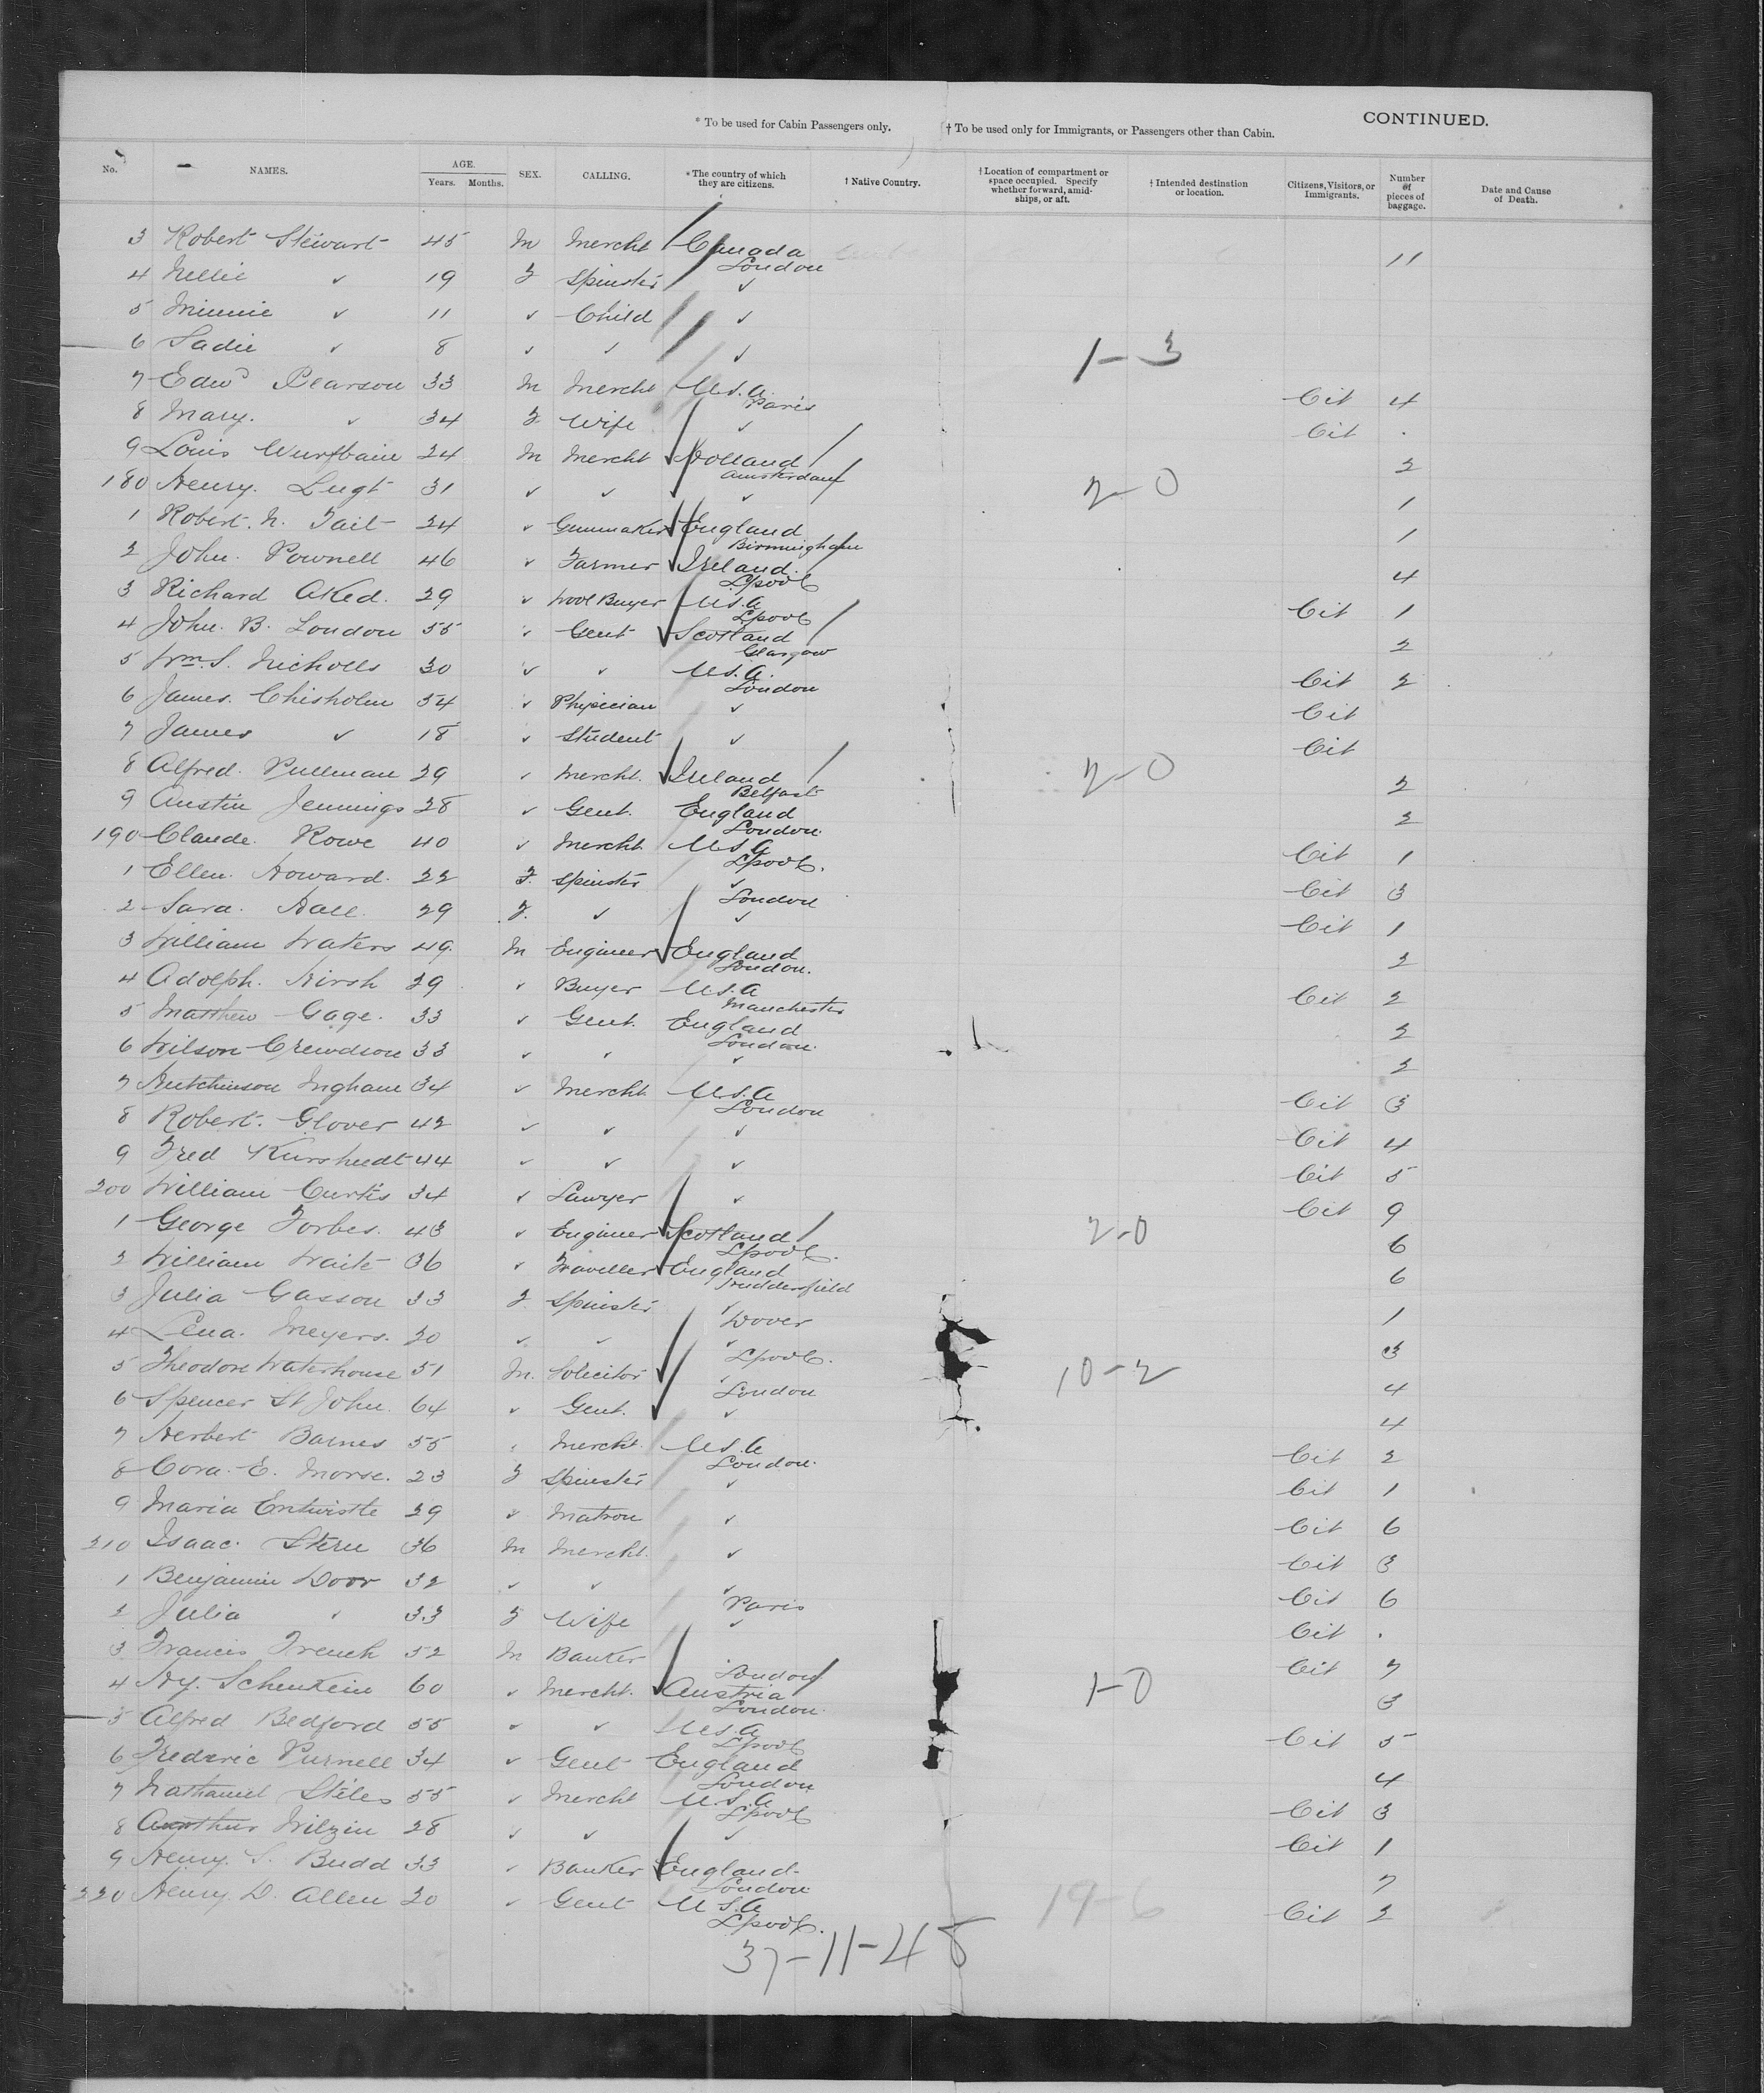 * To be used for Cabin Passengers only. † To be used only for Immigrants, or Passengers other than Cabin. CONTINUED.
No. NAMES. AGE. Years. Months. SEX. CALLING. * The country of which they are citizens. † Native Country. † Location of compartment or space occupied. Specify whether forward, amidships, or aft. † Intended destination or location. Citizens, Visitors, or Immigrants. Number of pieces of baggage. Date and Cause of Death.
3 Robert Stewart 45 M Mercht Canada London 11
4 Nellie ✓ 19 F Spinster ✓
5 Minnie ✓ 11 ✓ Child ✓
6 Sadie ✓ 8 ✓ ✓ ✓ 1-3
7 Edwd Pearson 33 M Mercht U.S.A. Paris Cit 4
8 Mary. ✓ 34 F Wife ✓ Cit .
9 Louis Wurfbain 24 M Mercht Holland Amsterdam 2
180 Henry. Lugt 31 ✓ ✓ ✓ 2-0 1
1 Robert. N. Tait 24 ✓ Gunmaker England Birmingham 1
2 John. Pownell 46 ✓ Farmer Ireland. Lpool 4
3 Richard Aked. 29 ✓ Wool Buyer U.S.A Lpool Cit 1
4 John. B. London 55 ✓ Gent Scotland Glasgow 2
5 Wm. S. Nicholls 30 ✓ ✓ U.S.A. London Cit 2
6 James. Chisholm 54 ✓ Physician ✓ Cit
7 James ✓ 18 ✓ Student ✓ Cit
8 Alfred. Pullman 29 ✓ Mercht. Ireland Belfast 2-0 2
9 Austin Jennings 28 ✓ Gent. England London. 2
190 Claude. Rowe 40 ✓ Mercht. U.S.A Lpool. Cit 1
1 Ellen. Howard. 22 F. Spinster ✓ London Cit 3
2 Sara. Hall. 29 F. ✓ ✓ Cit 1
3 William Waters 49. M Engineer England London. 2
4 Adolph. Hirsh 29 ✓ Buyer U.S.A Manchester Cit 2
5 Matthew Gage. 33 ✓ Gent. England London. 2
6 Wilson Crewdson 33 ✓ ✓ ✓ 2
7 Hutchinson Ingham 34 ✓ Mercht. U.S.A London Cit 3
8 Robert. Glover 42 ✓ ✓ ✓ Cit 4
9 Fred Kursheedt 44 ✓ ✓ ✓ Cit 5
200 William Curtis 34 ✓ Lawyer ✓ Cit 9
1 George Forbes. 43 ✓ Engineer Scotland Lpool. 2-0 6
2 William Waite 36 ✓ Traveller England Huddersfield 6
3 Julia Gasson 33 F Spinster ✓ Dover 1
4 Lena. Meyers. 20 ✓ ✓ ✓ Lpool. 3
5 Theodore Waterhouse 51 M. Solicitor ✓ London 10-2 4
6 Spencer St John. 64 ✓ Gent. ✓ 4
7 Herbert Barnes 55 ✓ Mercht. U.S.A London. Cit 2
8 Cora. E. Morse. 23 F Spinster ✓ Cit 1
9 Maria Entwistle 29 ✓ Matron ✓ Cit 6
210 Isaac. Stern 36 M Mercht. ✓ Cit 3
1 Benjamin Door 32 ✓ ✓ ✓ Paris Cit 6
2 Julia ✓ 33 F Wife ✓ Cit .
3 Francis French 52 M Banker London Cit 7
4 Hy. Schenkein 60 ✓ Mercht. Austria London. 1-0 3
5 Alfred Bedford 55 ✓ ✓ U.S.A Lpool Cit 5
6 Frederic Purnell 34 ✓ Gent England London 4
7 Nathaniel Stiles 55 ✓ Mercht U.S.A Lpool Cit 3
8 Wilzin 28 ✓ ✓ ✓ Cit 1
9 Henry. S. Budd 33 ✓ Banker England London 7
220 Henry. D. Allen 20 ✓ Gent U.S.A Lpool. 19-6 Cit 2
37-11-48